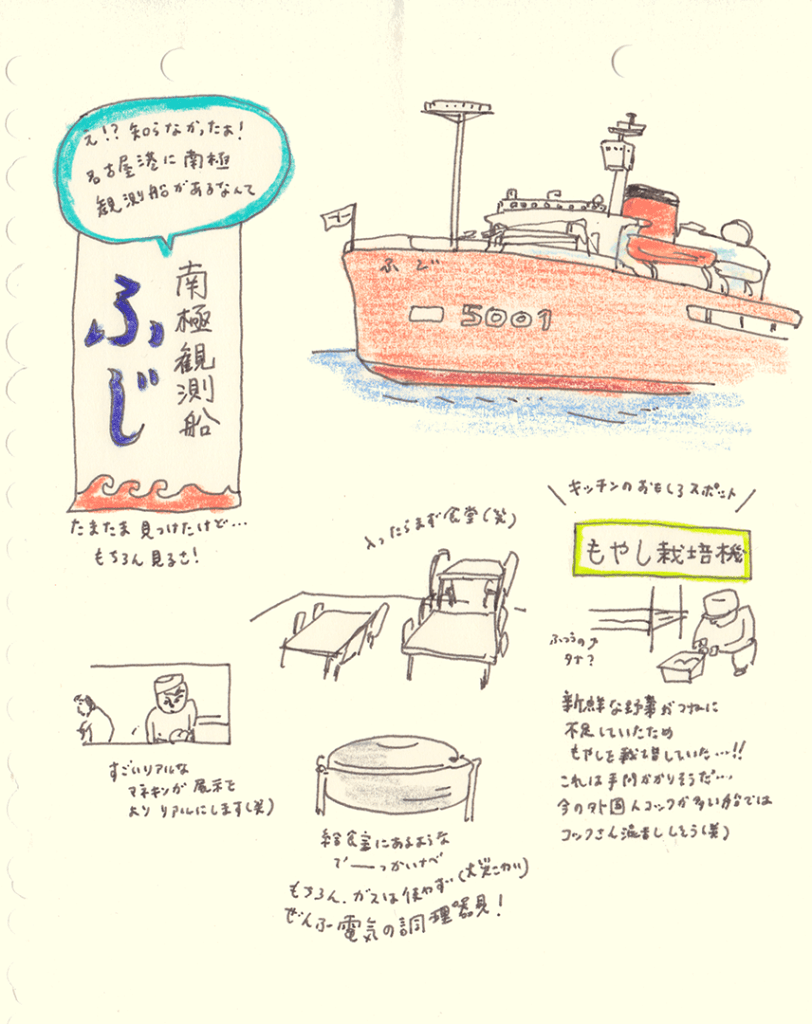 え!? 知らなかったぁ!
名古屋港に南極
観測船があるなんて
南極観測船
ふじ
たまたま 見つけたけど…
もちろん見るさ!
ふじ
5001
入ったらまず食堂(笑)
キッチンのおもしろスポット
もやし栽培機
ふつうの
タナ?
新鮮な野菜がつねに
不足していたため
もやしを栽培していた…!!
これは手間かかりそうだ…
今の外国人コックが多い船では
コックさん混乱しそう(笑)
すごいリアルな
マネキンが展示を
よりリアルにします(笑)
給食室にあるような
で――っかいナベ
もちろん、ガスは使わず(火災こわい)
ぜんぶ電気の調理器具!